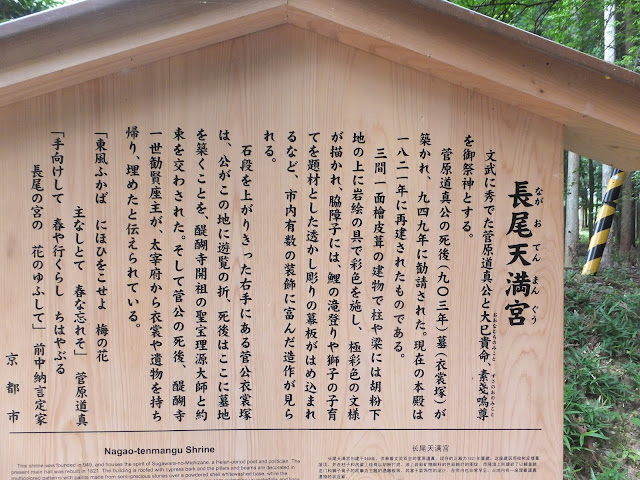 長尾天満宮
なが お てん まん ぐう
文武に秀でた菅原道真公と大己貴命、素戔嗚尊
おおなむちのみこと
すさのおのみこと
を御祭神とする。
菅原道真公の死後(九〇三年)墓(衣裳塚)が
築かれ、九四九年に勧請された。現在の本殿は
一八二一年に再建されたものである。
三間一面檜皮葺の建物で柱や梁には胡粉下
地の上に岩絵の具で彩色を施し、極彩色の文様
が描かれ、脇障子には、鯉の滝登りや獅子の子育
てを題材とした透かし彫りの幕板がはめ込まれ
るなど、市内有数の装飾に富んだ造作が見ら
れる。
石段を上がりきった右手にある菅公衣裳塚
は、公がこの地に遊覧の折、死後はここに墓地
を築くことを、醍醐寺開祖の聖宝理源大師と約
束を交わされた。そして菅公の死後、醍醐寺
一世勧賢座主が、太宰府から衣裳や遺物を持ち
帰り、埋めたと伝えられている。
「東風ふかば にほひをこせよ 梅の花
主なしとて 春な忘れそ」 菅原道真
「手向けして 春や行くらし ちはやぶる
長尾の宮の 花のゆふして」 前中納言定家
京都市
Nagao-tenmangu Shrine
This shrine was founded in 949, and houses the spirit of Sugawara-no-Michizane, a Heian-period poet and politician. The
present main hall was rebuilt in 1821. The building is roofed with cypress bark and the pillars and beams are decorated in
multicolored patterns with paints made from semi-precious stones over a powdered shell whitewash base, while the
长尾天满宫